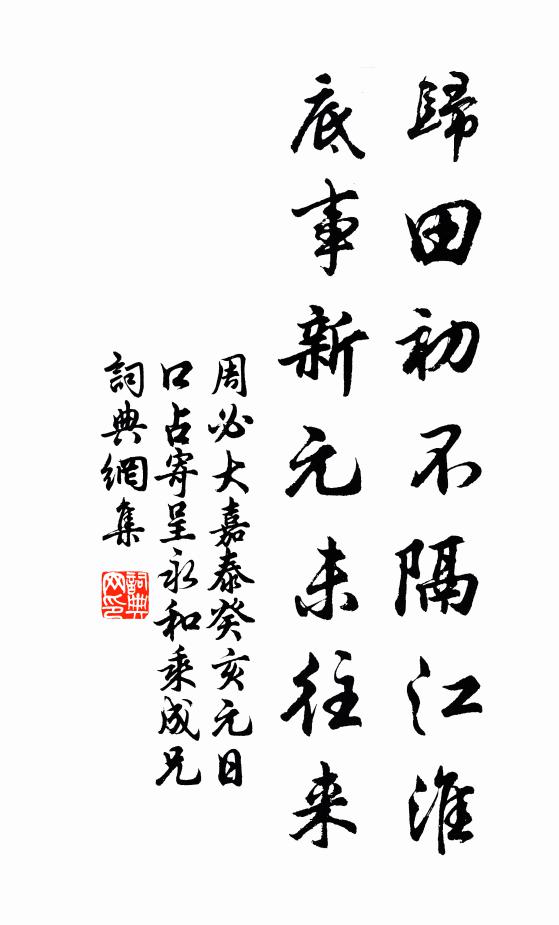 歸田初不隔江淮
底事新元未往来
周必大嘉泰癸亥元日
口占寄呈永和乘成兄
詞典網集
詞典网印